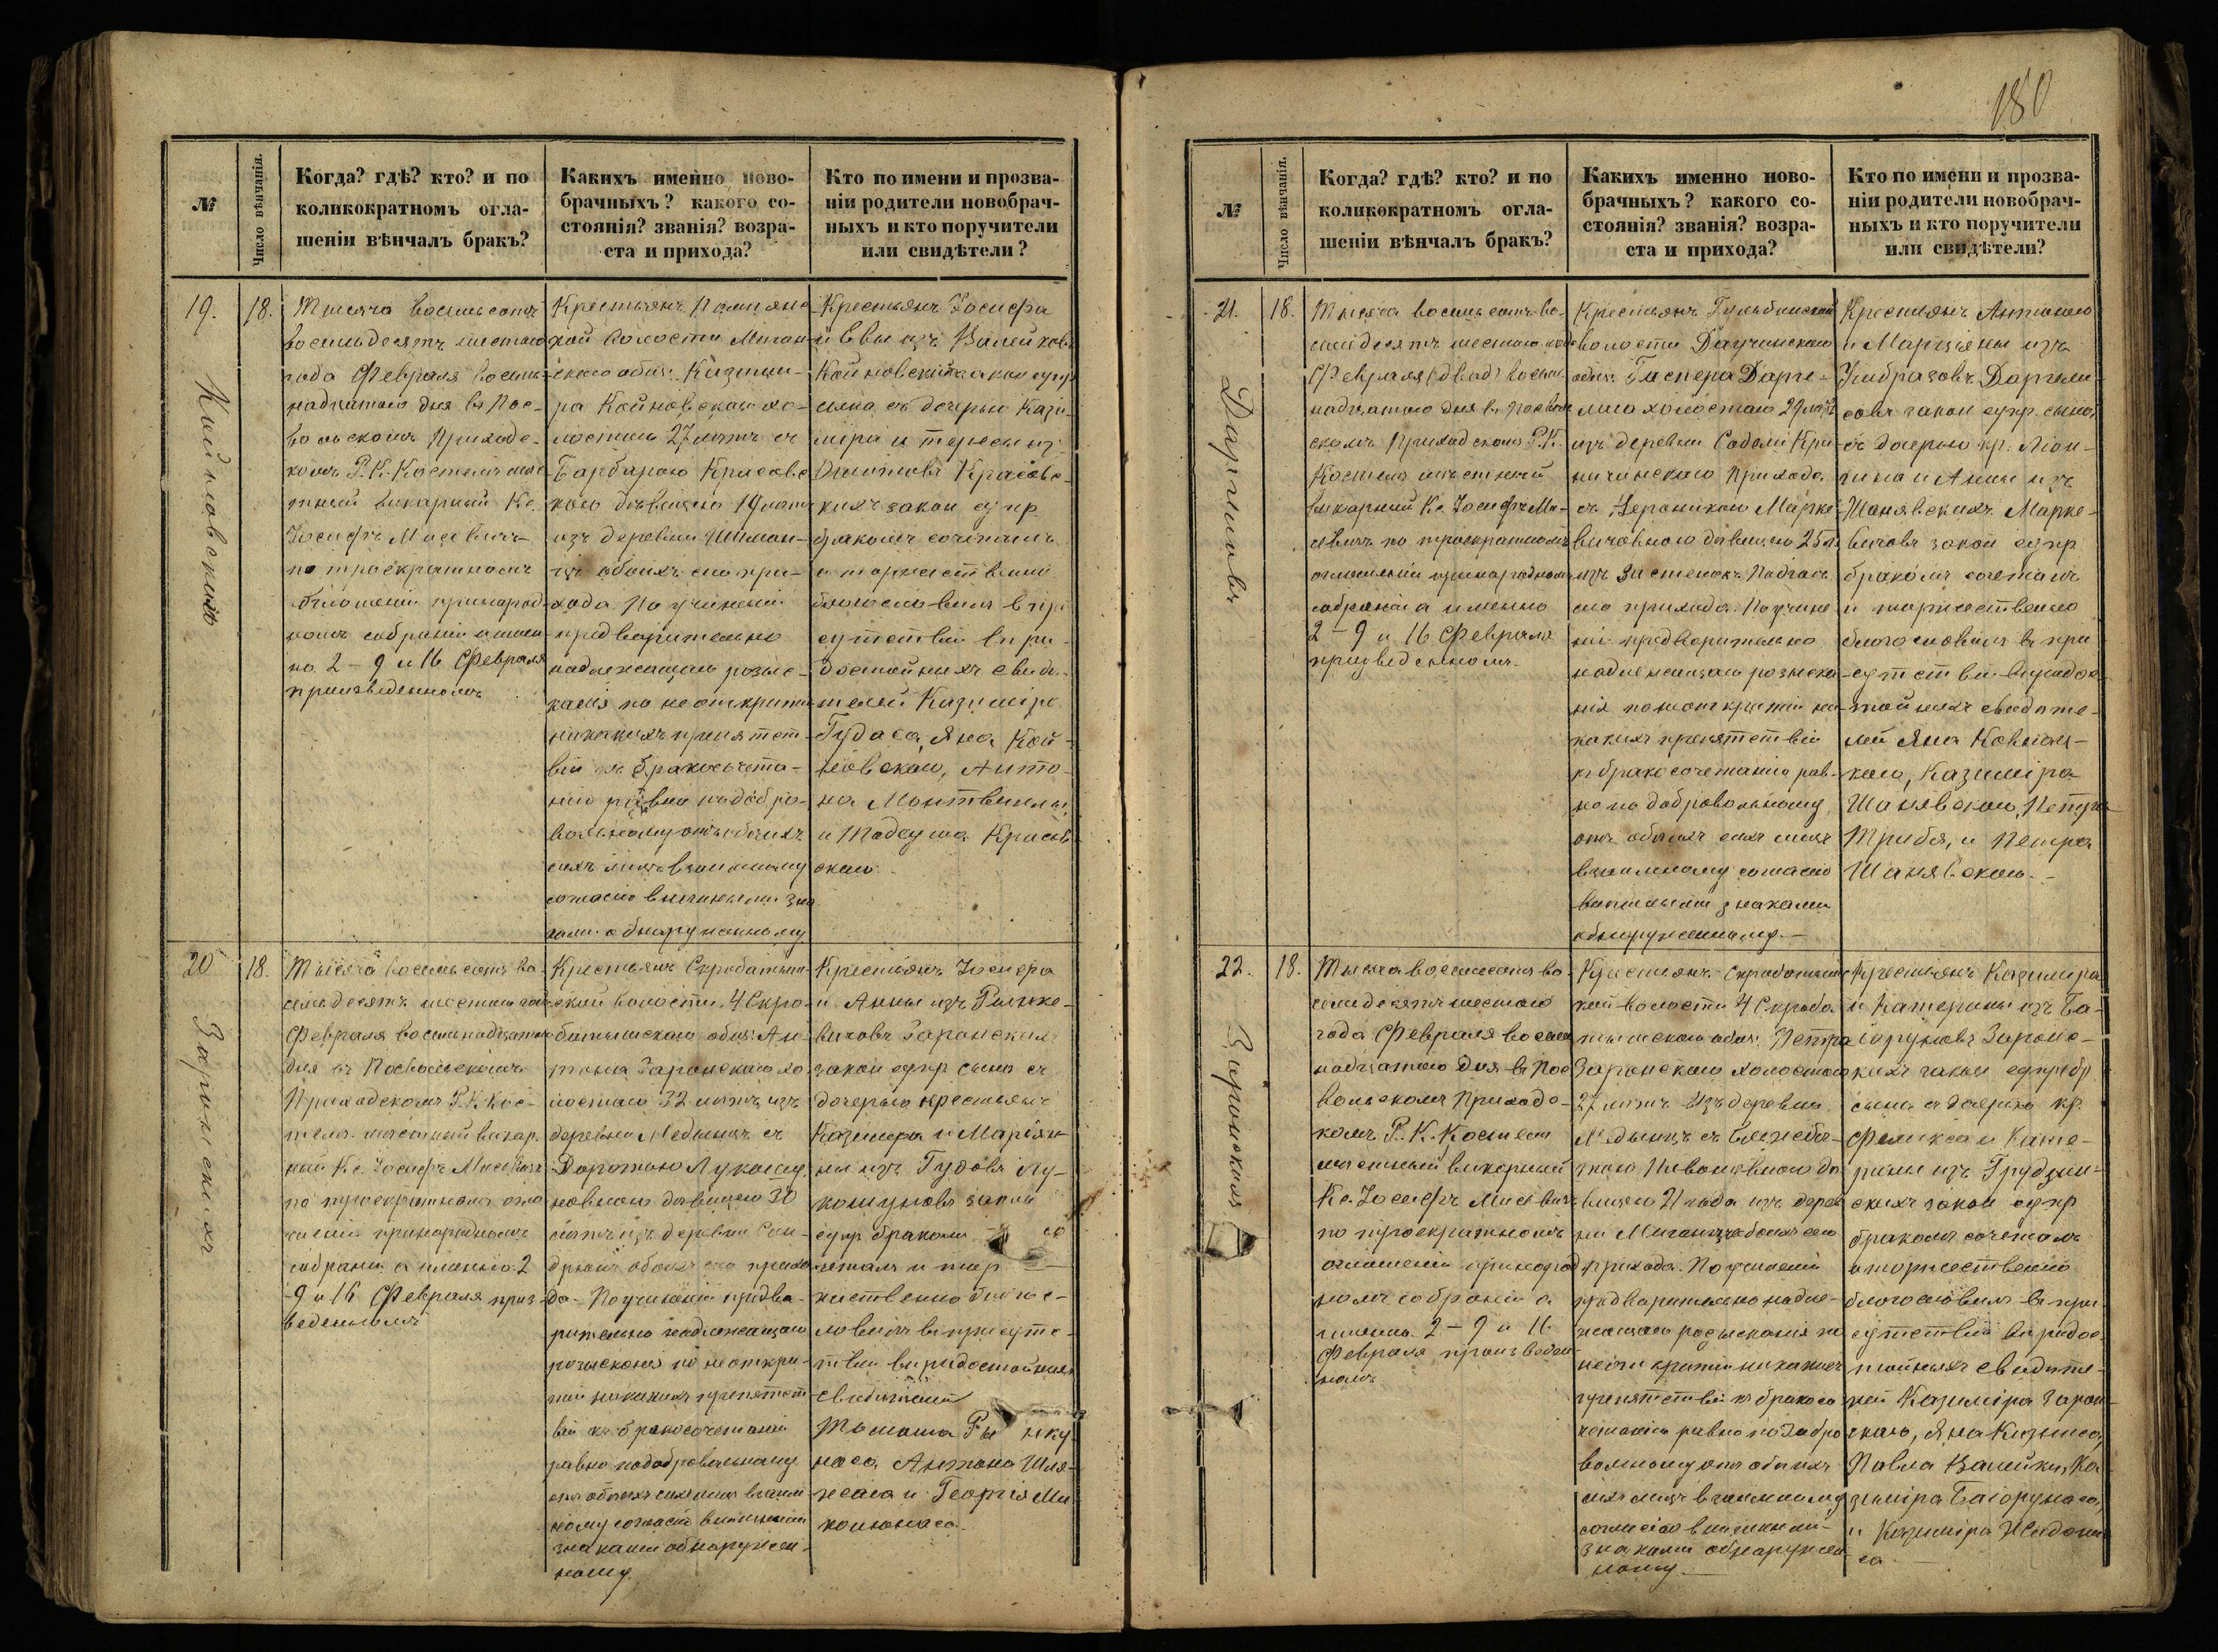 180
№
Число вѣнчанія.
Когда? гдѣ? кто? и по
коликократномъ огла-
шеніи вѣнчалъ бракъ?
Какихъ именно ново-
брачныхъ? какого со-
стоянія? званія? возра-
ста и прихода?
Кто по имени и прозва-
ніи родители новобрач-
ныхъ и кто поручители
или свидѣтели?
19.
18.
Тысяча восемьсотъ
восемьдесятъ шестаго
года Февраля восем-
надцатаго дня въ Пос-
вольскомъ Приходс-
комъ Р. К. Костелѣ мѣс-
тный викарный Кс.
Іосифъ Мисевичъ
по троекратномъ
оглашеніи принарод-
номъ собраніи а имен-
но 2 – 9 и 16 Февраля
произведенномъ
Крестьянъ
кой волости
скаго общ. Казими-
ра Койновскаго хо-
лостаго 27 лѣтъ съ
Барбарою Красовс-
кою дѣвицею 19 лѣтъ
изъ деревни
обоихъ сего при-
хода. По учиненіи
предварительно
надлежащаго розыс-
канія по неоткрытіи
никакихъ препятст-
вій къ бракосочета-
нію равно по добро-
вольному отъ обоихъ
сихъ лицъ взаимному
согласію внѣшними зна
ками обнаруженному
Крестьянъ Іосифа
и Евы изъ Валейковъ
Койновскихъ закон супр
сына, съ дочерью Кази-
міра и Терезы изъ
Красовс-
кихъ закон супр
бракомъ сочеталъ
и торжественно
благословилъ въ при
сутствіи вѣри-
достойныхъ свидѣ-
телей Казиміра
Гудаса, Яна Кой-
новскаго, Анто-
на Монтвилы
и Тадеуша Красов
скаго.
Койновскихъ
20
18.
Тысяча восемьсотъ во-
семьдесятъ шестаго года
Февраля восемнадцатаго
дня въ Посвольскомъ
Приходскомъ Р. К. Кос-
телѣ мѣстный викар-
ный Кс. Іосифъ Мисевичъ
по троекратномъ огла
шеніи принародномъ
собраніи а именно 2
– 9 и 16 Февраля произ-
веденномъ
Крестьянъ Скробатынс-
ской волости 4 Скро-
батынскаго общ. Ан-
тона Заронскаго хо-
лостаго 32 лѣтъ изъ
деревни Медыницъ съ
Доротою Лукошу-
новною дѣвицею 30
лѣтъ изъ деревни
обоихъ сего прихо-
да. По учиненіи предва-
рительно надлежащаго
розысканія по неоткры-
тіи никакихъ препятст-
вій къ бракосочетанію
равно по добровольному
отъ обоихъ сихъ лицъ взаим
ному согласію внѣшними
знаками обнаружен-
ному.
Крестьянъ Іосифа
и Анны изъ Рынке-
вичовъ Заронскихъ
закон супр сына съ
дочерью крестьянъ
Казиміра и Маріян-
ны изъ Гудовъ Лу-
кошуновъ закон
супр бракомъ со
четалъ и торж
жественно благос-
ловилъ въ присутс-
твіи вѣридостойныхъ
свидѣтелей
Томаша Ры нку
наса Антона Шля-
жаса и Георгія Ми-
колюнаса.
Заронскихъ
№
Число вѣнчанія.
Когда? гдѣ? кто? и по
коликократномъ огла-
шеніи вѣнчалъ бракъ?
Какихъ именно ново-
брачныхъ? какого со-
стоянія? званія? возра-
ста и прихода?
Кто по имени и прозва-
ніи родители новобрач-
ныхъ и кто поручители
или свидѣтели?
21.
18.
Тысяча восемьсотъ во-
семьдесятъ шестаго года
Февраля восем-
надцатаго дня въ Посволь
скомъ Приходскомъ Р. К.
Костелѣ мѣстный
викарный Кс. Іосифъ Ми-
севичъ по троекратномъ
оглашеніи принародномъ
собраніи а именно
2 – 9 и 16 Февраля
произведенномъ.
Крестьянъ
волости
общ. Гаспера Дарги-
лиса холостаго 29 лѣтъ
изъ деревни Садели Кри-
ничинскаго Прихода
съ Вероникою Марке-
вичовною дѣвицею 25 л.
изъ застенокъ
сего прихода. По учине-
ніи предварительно
надлежащаго розыска-
нія по неоткрытіи ни-
какихъ препятствій
къ бракосочетанію рав-
но по добровольному
отъ обоихъ сихъ лицъ
взаимному согласію
внѣшними знаками
обнаруженному. —
Крестьянъ Антонаго
и Марціаны изъ
Даргели-
совъ закон супр. сына,
съ дочерью кр.
и Анны изъ
Шанявскихъ Марке-
вичовъ закон супр
бракомъ сочеталъ
и торжественно
благословилъ въ при
сутствіи вѣридос-
тойныхъ свидѣте-
лей Яна Ковнац-
каго, Казиміра
Шанявскаго, Петра
Триба, и Петра
Шанявскаго. —
Даргисовъ
22.
18.
Тысяча восемьсотъ во-
семьдесятъ шестаго
года Февраля восем
надцатаго дня въ Пос
вольскомъ Приходс-
комъ Р. К. Костелѣ
мѣстный викарный
Кс. Іосифъ Мисевичъ
по троекратномъ
оглашеніи принарод
номъ собраніи а
именно 2 – 9 и 16
Февраля произведен
номъ
Крестьянъ Скробатынс
кой волости 4 Скроба-
тынскаго общ. Петра
Заронскаго холостаго
27 лѣтъ изъ деревни
Медыницъ съ Елисабе-
тою дѣ
вицею 21 года изъ дерев
ни обоихъ сего
прихода. По учиненіи
предварительно надле-
жащаго розысканія по
неоткрытіи никакихъ
препятствій къ бракосо
четанію равно по добро
вольному отъ обоихъ
сихъ лицъ взаимному
согласію внѣшними
знаками обнаружен-
ному. —
Крестьянъ Казиміра
и Катерины изъ Ба-
горуновъ Заронс-
кихъ закон супр бр
сына съ дочерью кр.
Феликса и Кате-
рины изъ Грудзин-
скихъ закон супр
бракомъ сочеталъ
и торжественно
благословилъ въ при-
сутствіи вѣридос-
тойныхъ свидѣте-
лей Казиміра Зарон-
скаго, Яна Кизыса,
Павла Валейки, Ка-
зиміра Багорунаса,
и Казиміра
са —
Заронскихъ